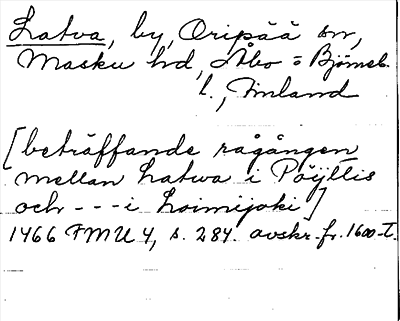 Latva, by, Oripää sn,
Masku hd, Åbo = Björneb.
l., Finland
[beträffande rågången
mellan Latwa i Pöijttis
och - - - i Loimijoki]
1466 FMU 4, s. 284. avskr. fr. 1600-t.